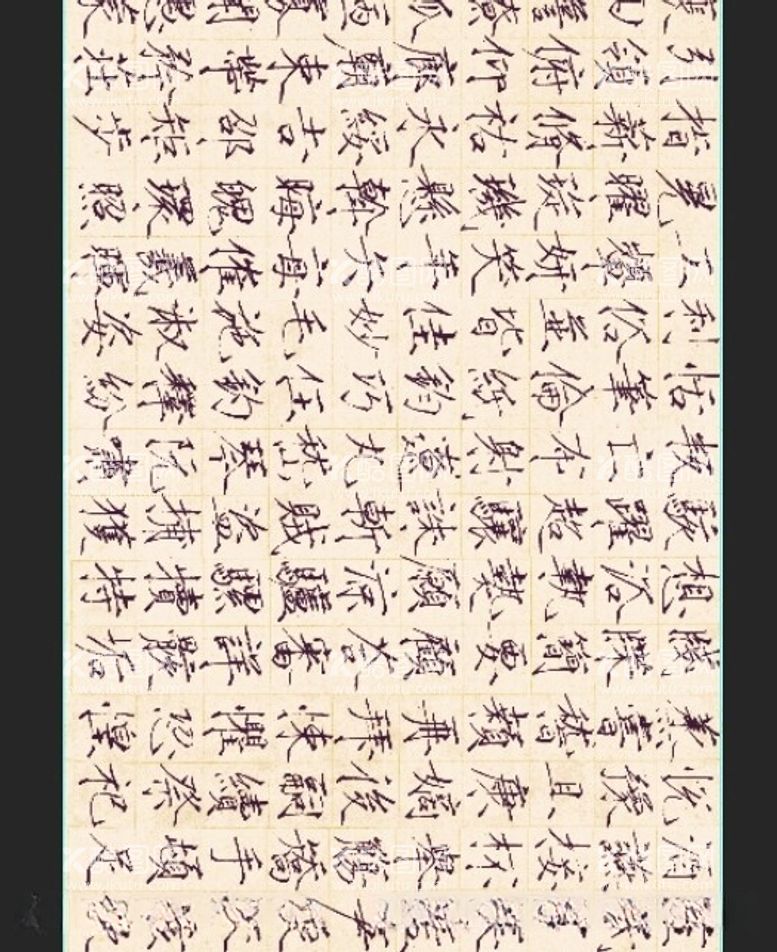 引領俯仰廊廟束帶矜莊
指薪脩祜永綏吉邵矩步
晃曜琁璣懸斡晦魄環照
工嚬妍笑年矢每催羲暉
利俗並皆佳妙毛施淑姿
恬筆倫紙鈞巧任釣釋紛
叛亡布射遼丸嵇琴阮嘯
駭躍超驤誅斬賊盜捕獲
想浴執熱願涼驢騾犢特
牋牒簡要顧答審詳骸垢
蒸嘗稽顙再拜悚懼恐惶
悅豫且康嫡後嗣續祭祀
酒讌接杯舉觴矯手頓足